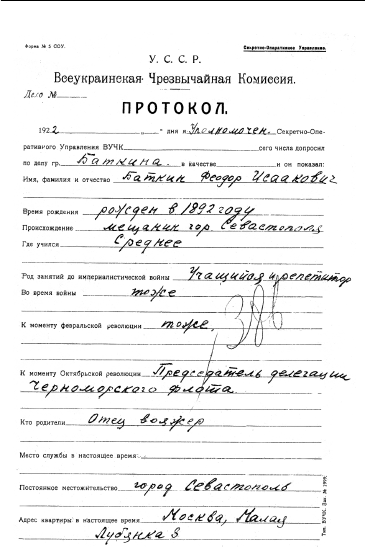 Форма № 5 СОУ.
Секретно-Оперативное Управление.
У. С. С. Р.
Всеукраинская Чрезвычайная Комиссия.
Дело №
ПРОТОКОЛ.
1922 „ “ дня я Уполномочен. Секретно-Опе-
ративного Управления ВУЧК сего числа допросил
по делу гр. Баткина. в качестве и он показал:
Имя, фамилия и отчество Баткин Феодор Исаакович
Время рождения рожден в 1892 году
Происхождение мещанин гор. Севастополя
Где учился Среднее
Род занятий до империалистической войны Учащийся и репетитор
Во время войны тоже
К моменту февральской революции тоже.
К моменту Октябрьской революции Председатель делегации
Черноморского флота.
Кто родители Отец вояжер
Место службы в настоящее время
Постоянное местожительство город Севастополь
Адрес квартиры в настоящее время Москва, Малая
Лубянка 3
Тип. ВУЧК. Зак. № 1999.